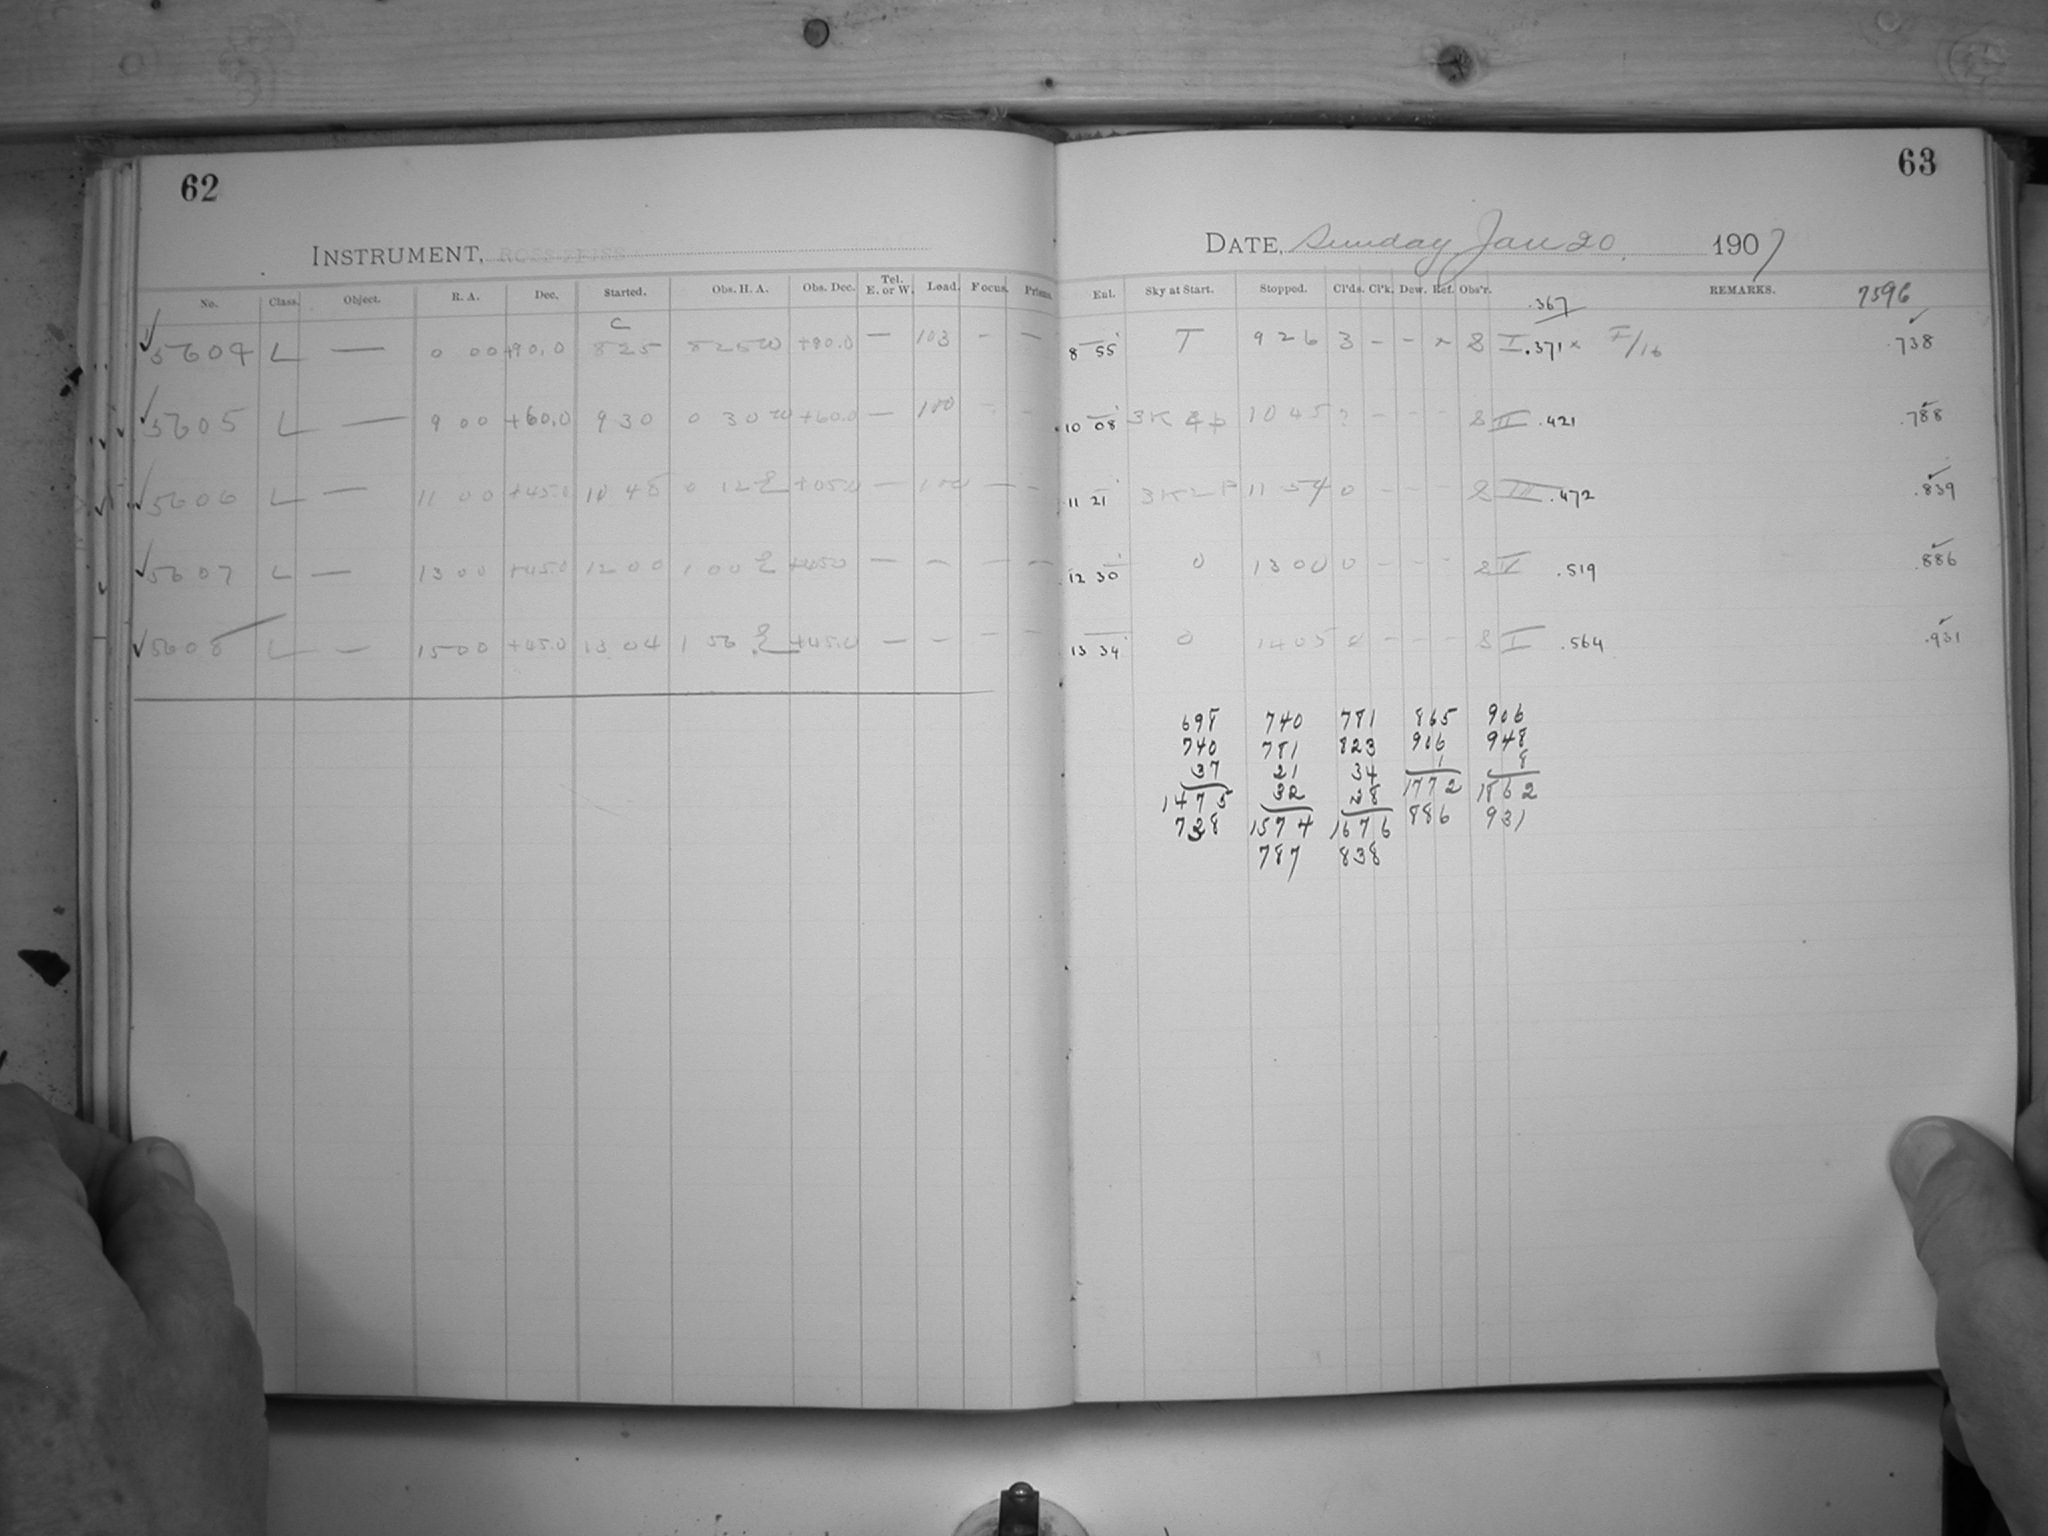 62
63
INSTRUMENT, ROSS-ZEISS
DATE, Sunday Jan 20, 1907
No. Class. Object. R. A. Dec. Started. Obs. H. A. Obs. Dec. Tel. E. or W. Load. Focus. Prisms.
Enl. Sky at Start. Stopped. Cl'ds. Cl'k. Dew. Ref. Obs'r. REMARKS. 7596
.367
C
✓ 5604 L — 0 00 +90.0 825 825 W +90.0 — 103 - — 8 55 T 926 3 - - x S I .371 x F/16 .738
✓ 5605 L — 9 00 +60.0 930 0 30 W +60.0 — 100 - - 10 08 1045 ? - - - S II .421 .788
✓ 5606 L — 11 00 +45.0 10 48 0 12 E — 100 — — 11 21 11 54 0 - - - S III .472 .839
✓ 5607 L — 13 00 +45.0 12 00 1 00 E +45.0 — — — — 12 30 0 1300 0 - - - S .519 .886
✓ 5608 L — 15 00 +45.0 13 04 1 56 E +45.0 — — - — 13 34 0 1405 0 - - - S I .564 .931
698 740 781 865 906
740 781 823 906 948
37 21 34 1 8
1475 32 38 1772 1862
738 1574 1676 886 931
787 838